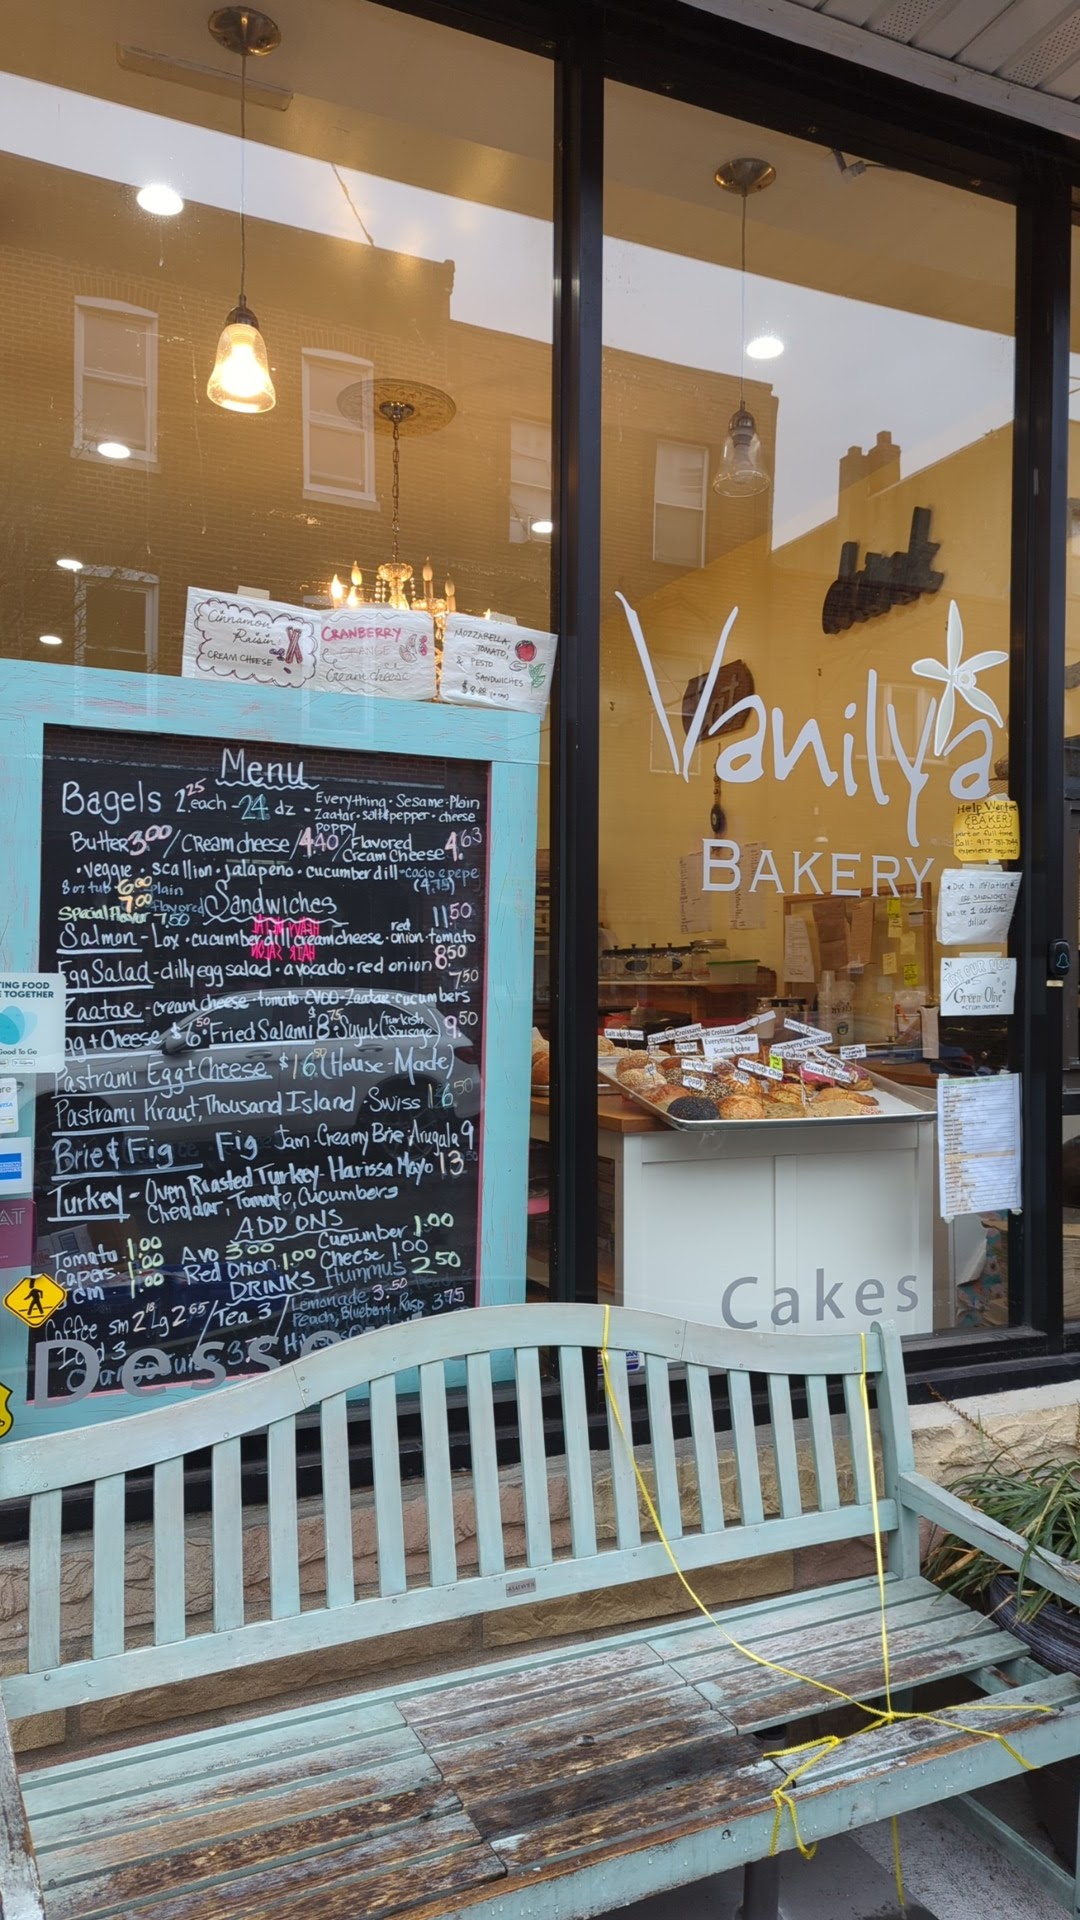 Cinnamon
Raisin
CREAM CHEESE
CRANBERRY
& ORANGE
Cream cheese
MOZZARELLA,
TOMATO,
& PESTO
SANDWICHES
Menu
Bagels 2.25 each - 24 dz - Everything · Sesame · Plain
Zaatar · salt & pepper · cheese
POPPY
Butter 3.00 / Cream cheese / 4.40 / Flavored
Cream Cheese 4.63
· veggie · scallion · jalapeno · cucumber dill · cacio e pepe
(4.75)
8 oz tub - 6.00 Plain
7.00 Flavored
Special Flavor 7.50
Sandwiches
Salmon - Lox · cucumber dill cream cheese · red onion · tomato 11.50
Egg Salad - dilly egg salad · avocado · red onion 8.50
Zaatar - cream cheese · tomato · EVOO · Zaatar · cucumbers 7.50
Egg + Cheese $6.50 · Fried Salami $8.75 · Sujuk (Turkish Sausage) 9.50
Pastrami Egg + Cheese $16.50 (House-Made)
Pastrami Kraut, Thousand Island · Swiss 16.50
Brie & Fig Fig Jam · Creamy Brie · Arugula 9
Turkey - Oven Roasted Turkey - Harissa Mayo 13
Cheddar, Tomato, Cucumbers
ADD ONS
Tomato 1.00 Avo 3.00 Cucumber 1.00
Capers 1.00 Red Onion 1.00 Cheese 1.00
1.00 Hummus 2.50
DRINKS
Coffee sm 2.18 Lg 2.65 / Tea 3 / Lemonade 3.50
Peach, Blueberry, Rasp 3.75
Iced 3
Vanilya
BAKERY
Help Wanted
(BAKER)
part or full time
experience required
Due to inflation
EGG SANDWICHES
will be 1 additional
dollar
Green Olive
cream cheese
Everything Cheddar
Scallion Scone
Chocolate Chip
Cakes